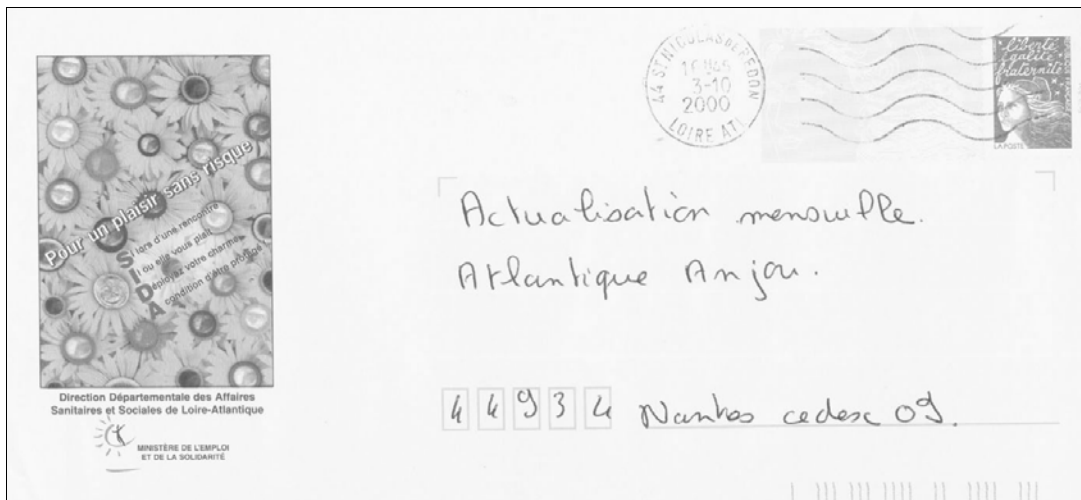 Pour un plaisir sans risque
Si lors d'une rencontre
Il ou elle vous plaît
Déployez votre charme
A condition d'être protégé
Direction Départementale des Affaires
Sanitaires et Sociales de Loire-Atlantique
MINISTÈRE DE L'EMPLOI
ET DE LA SOLIDARITÉ
44 ST NICOLAS DE REDON
16H45
3-10
2000
LOIRE ATL
liberté
égalité
fraternité
LA POSTE
Actualisation mensuelle.
Atlantique Anjou.
44934 Nantes cedex 09.